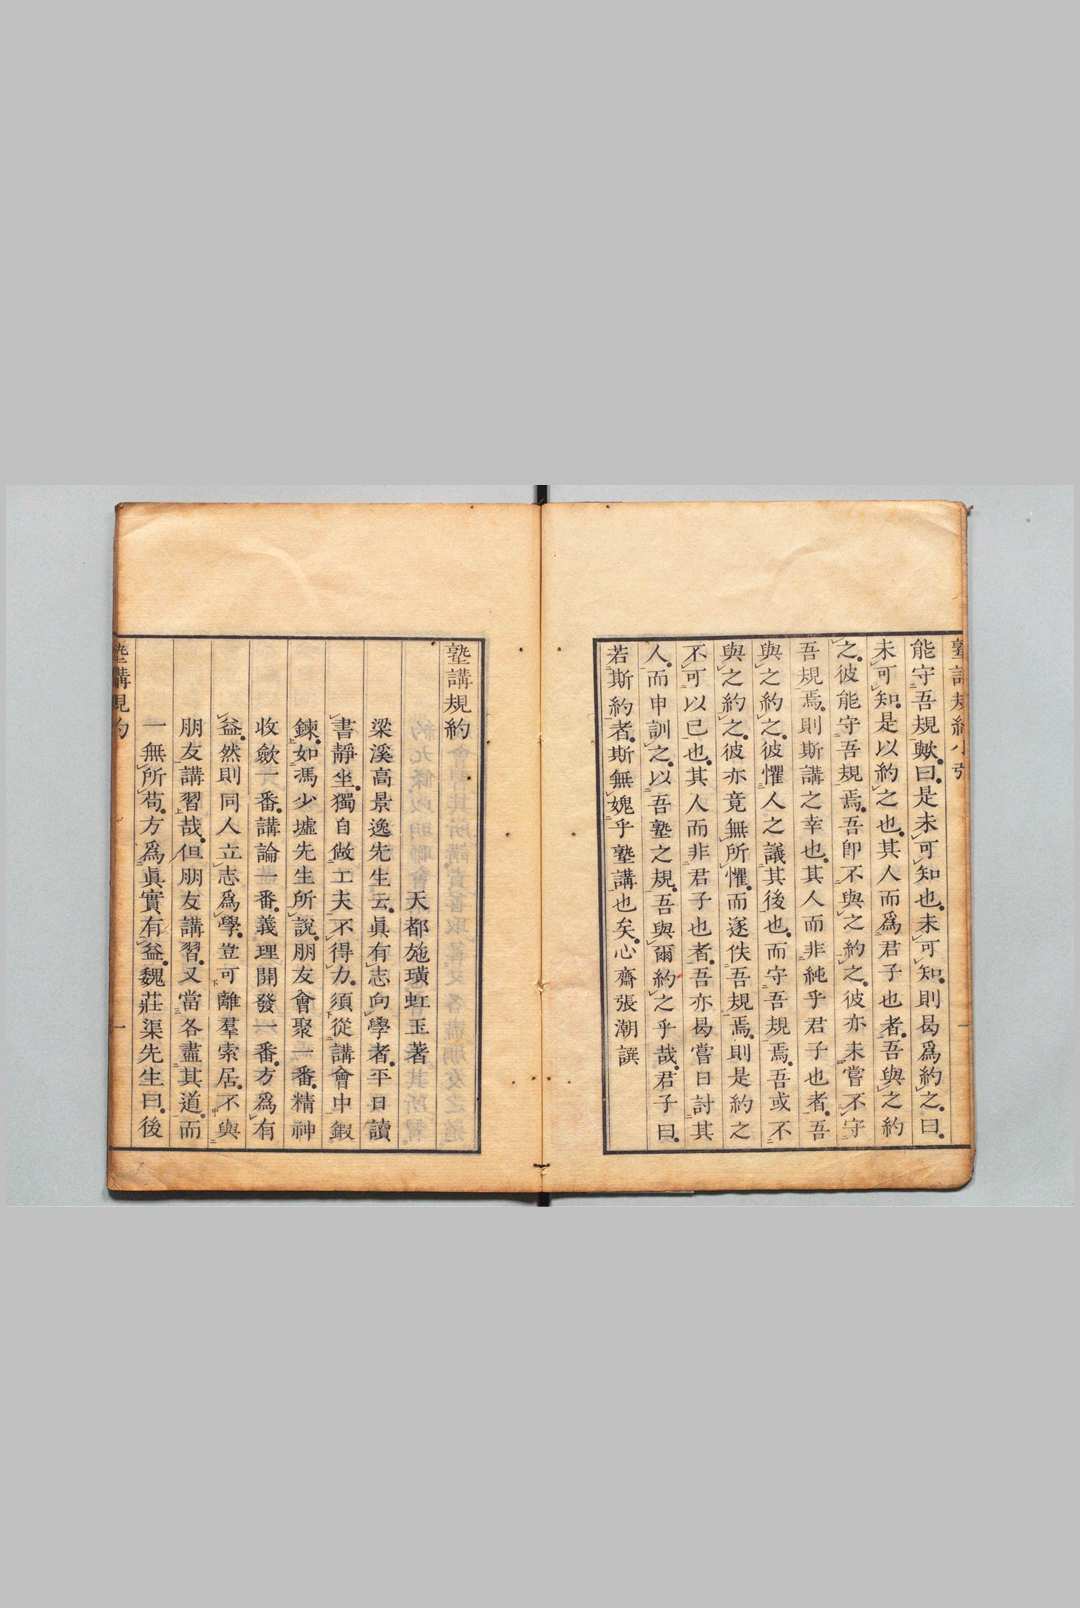 塾講規約小引
能守吾規歟曰是未可知也未可知則曷爲約之曰
未可知是以約之也其人而爲君子也者吾與之約
之彼能守吾規焉吾卽不與之約之彼亦未嘗不守
吾規焉則斯講之幸也其人而非純乎君子也者吾
與之約之彼懼人之議其後也而守吾規焉吾或不
與之約之彼亦竟無所懼而遂佚吾規焉則是約之
不可以已也其人而非君子也者吾亦曷嘗日討其
人而申訓之以吾塾之規吾與爾約之乎哉君子曰
若斯約者斯無媿乎塾講也矣心齋張潮譔
塾講規約
天都施璜虹玉著
梁溪高景逸先生云眞有志向學者平日讀
書靜坐獨自做工夫不得力須從講會中鍜
鍊如馮少墟先生所說朋友會聚一番精神
收歛一番講論一番義理開發一番方爲有
益然則同人立志爲學豈可離羣索居不與
朋友講習哉但朋友講習又當各盡其道而
一無所苟方爲眞實有益魏莊渠先生曰後
塾講規約
一